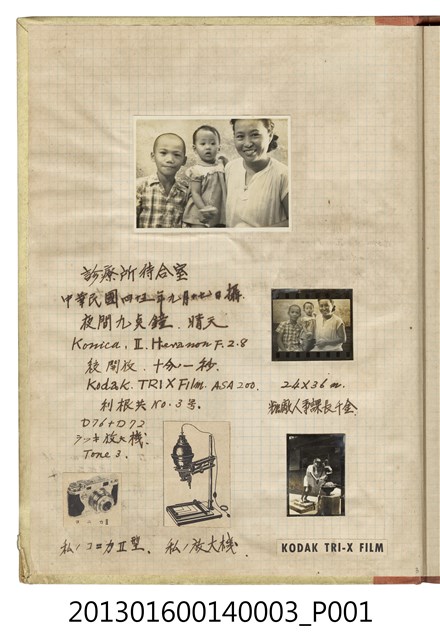 診療所待合室
中華民國四五年九月十七日攝
夜間九点鐘、晴天
Konica. II. Hexanon F. 2.8
絞開放. 十分一秒.
Kodak. TRI X Film. ASA 200.
利根共 No. 3号.
D76+D72
ラッキ放大機.
Tone 3.
24X36 m.
課長千金.
私ノコニカII型、
私ノ放大機
KODAK TRI-X FILM
201301600140003_P001